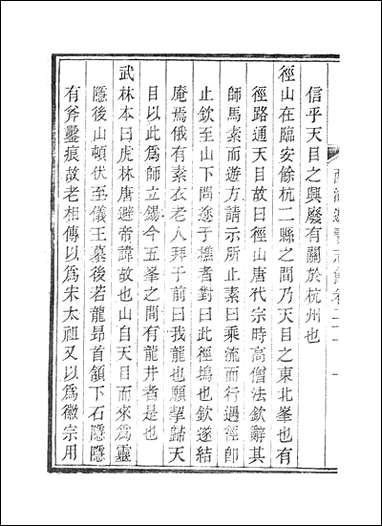 信乎天目之興廢有關於杭州也
徑山在臨安餘杭二縣之間乃天目之東北峯也有
徑路通天目故曰徑山唐代宗時高僧法欽辭其
師馬素而遊方請示所止素曰乘流而行遇徑卽
止欽至山下問途于樵者對曰此徑塢也欽遂結
庵焉俄有素衣老人拜于前曰我龍也願挈歸天
目以此爲師立錫今五峯之間有龍井者是也
武林本曰虎林唐避帝諱故也山自天目而來爲靈
隱後山頓伏至儀王墓後若龍昂首頷下石隱隱
有斧鑿痕故老相傳以爲宋太祖又以爲徽宗用